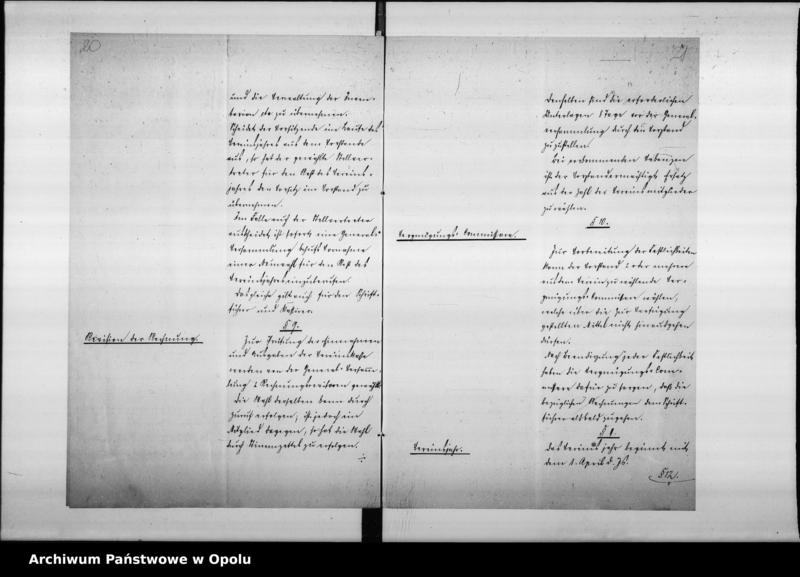 20
und die Verwaltung der Inven-
tarien etc zu übernehmen.
Scheidet der Vorsitzende im Laufe des
Vereinsjahres aus dem Vorstande
aus, so hat der gewählte Stellver-
treter für den Rest des Vereins-
jahres den Vorsitz im Vorstand zu
übernehmen.
Im Falle auch der Stellvertreter
ausscheidet, ist sofort eine General-
Versammlung behufs Vornahme
einer Neuwahl für den Rest des
Vereinsjahres einzuberufen.
Das gleiche gilt auch für den Schrift-
führer und Kassirer.
§ 9.
Revision der Rechnung.
Zur Prüfung der Einnahmen
und Ausgaben der Vereinskasse
werden von der General-Versamm-
lung 2 Rechnungsrevisoren gewählt.
Die Wahl derselben kann durch
Zuruf erfolgen, ist jedoch ein
Mitglied dagegen, so hat die Wahl
durch Stimmzettel zu erfolgen.
Denselben sind die erforderlichen
Unterlagen 8 Tage vor der General-
versammlung durch den Vorstand
zuzustellen.
Bei vorkommenden
ist der Ersatz
aus der Zahl der Vereinsmitglieder
zu wählen.
§ 10.
Vergnügungs-Commission.
Zur Vorbereitung der Festlichkeiten
kann der Vorstand 1 oder mehrere
aus dem Verein zu wählende Ver-
gnügungskommission wählen,
welche über die zur Verfügung
gestellten Mittel nicht hinausgehen
dürfen.
Nach Beendigung jeder Festlichkeit
haben die Vergnügungskom-
dafür zu sorgen, daß die
bezüglichen Rechnungen dem Schrift-
führer alsbald zugehen.
§ 11.
Vereinsjahr.
Das Vereinsjahr beginnt mit
dem 1. April d. Js.
§ 12.
Archiwum Państwowe w Opolu